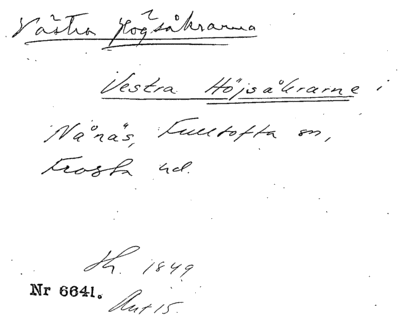 Västra Högsåkrarna
Vestra Höjsåkrarne i
Nånäs, Fulltofta sn,
Frosta hd.
Sk. 1849
Nr 6641.
Akt 15.